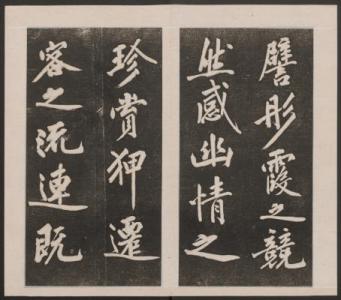 譬彤霞之競
然感幽情之
珍賞狎遷
客之流連既